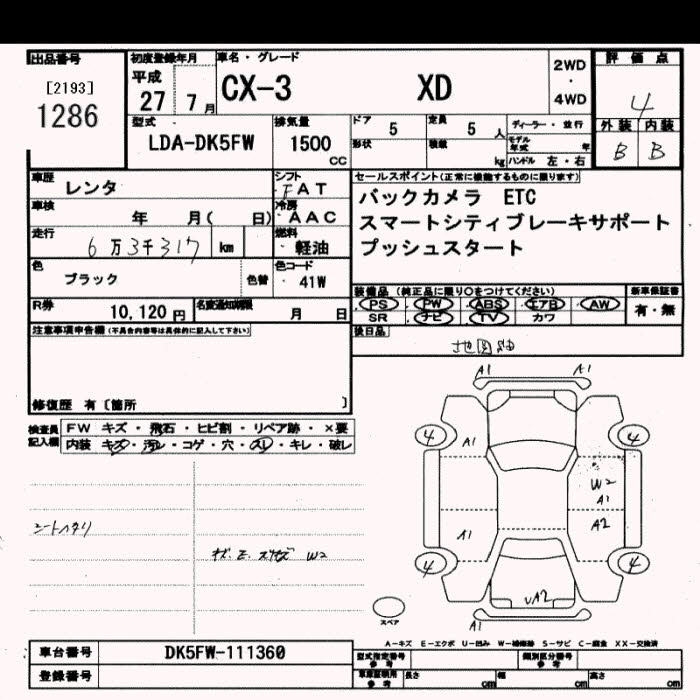 出品番号
[2193]
1286
初度登録年月
平成
27 7月
車名・グレード
CX-3 XD
2WD
・
4WD
評価点
4
外装 内装
B B
型式
LDA-DK5FW
排気量
1500
cc
ドア
5
定員
5 人
形状
積載
kg
ディーラー・並行
モデル年式 年
ハンドル 左・右
車歴
レンタ
シフト
FAT
車検
年 月( 日)
冷房
AAC
走行
6万3千317 km
燃料
軽油
色
ブラック
色替
色コード
41W
R券
10,120 円
名変通知期限
月 日
セールスポイント(正常に機能するものに限ります)
バックカメラ ETC
スマートシティブレーキサポート
プッシュスタート
装備品(純正品に限り○をつけてください)
PS PW ABS エアB AW
SR ナビ TV カワ
新車保証書
有・無
後日品
注意事項申告欄(不具合内容等は具体的に記入して下さい)
修復歴 有〔箇所 〕
検査員記入欄
FW キズ・飛石・ヒビ割・リペア跡・×要
内装 キズ・汚レ・コゲ・穴・スレ・キレ・破レ
シートヘタリ
W2
A1 A1
4 4
A1
W2
A1
A1 A2
4 4
A2
A1
スペア
A-キズ E-エクボ U-凹み W-補修跡 S-サビ C-腐食 XX-交換済
車台番号
DK5FW-111360
登録番号
型式指定番号
参考
類別区分番号
参考
車庫証明用
参考
長さ cm
幅 cm
高さ cm